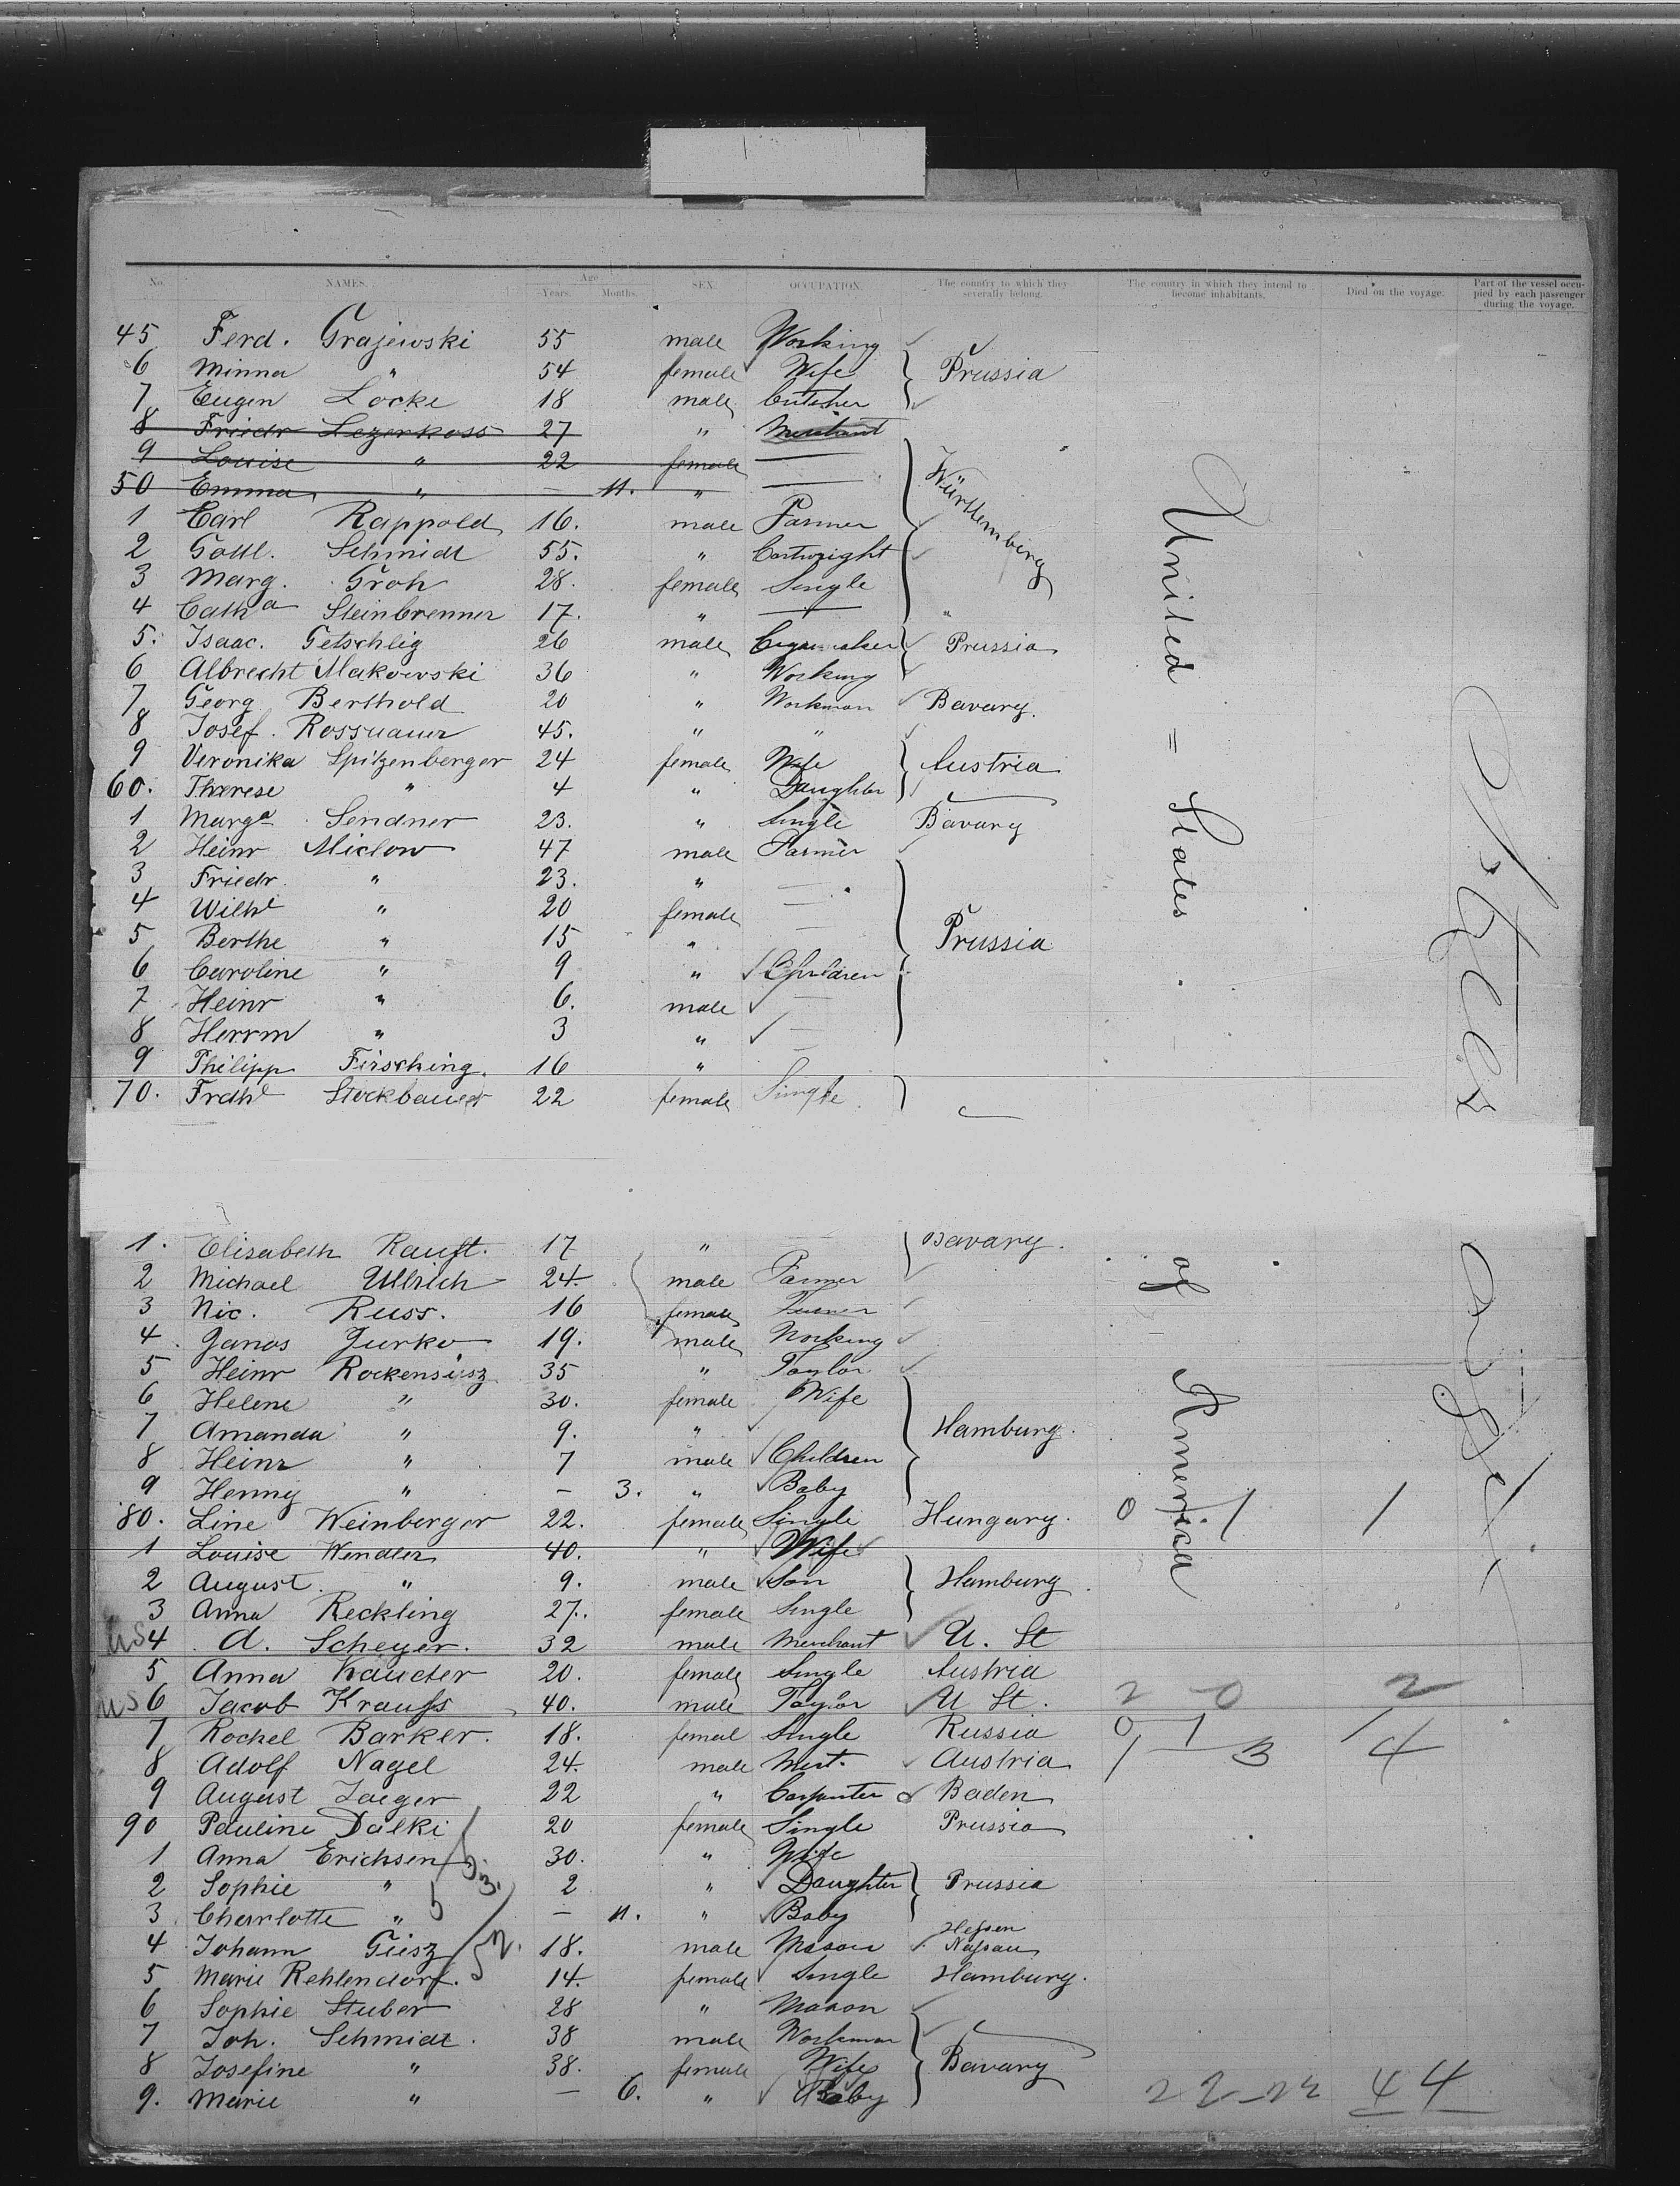 No. NAMES. Age Years. Months. SEX. OCCUPATION. The country to which they severally belong. The country in which they intend to become inhabitants. Died on the voyage. Part of the vessel occupied by each passenger during the voyage.
45 Ferd. Grajewski 55 male Working
6 Minna " 54 female Wife Prussia
7 Eugen Locke 18 male Butcher
8 Friedr Lezerkoss 27 " Merchant
9 Louise " 22 female —
50 Emma " — 11. " —
Württemberg
1 Carl Rappold 16. male Farmer
2 Gottl. Schmidt 55. " Cartwright
3 Marg. Groh 28. female Single
4 Cath a Steinbrenner 17. " — "
5. Isaac. Getschlig 26 male Prussia
6 Albrecht Makowski 36 " Working
7 Georg Berthold 20 " Workman Bavary.
8 Josef. 45. " "
9 Veronika Spitzenberger 24 female Wife Austria
60. Therese " 4 " Daughter
1 Marga Sendner 23. " Single Bavary
2 Heinr Miclow 47 male Farmer
3 Friedr. " 23. " —
4 Wilhe " 20 female —
5 Berthe " 15 " — Prussia
6 Caroline " 9 " Children
7 Heinr " 6. male —
8 Herrm " 3 " —
9 Philipp Firsching. 16 "
70. Stockbauer 22 female Single
United = States
of America
1. Elisabeth Rauft. 17 " Bavary.
2 Michael Ullrich 24. male Farmer
3 Nic. Russ. 16 female
4 Janos Jurko 19. male Working
5 Heinr Rockensüsz 35 " Taylor
6 Helene " 30. female Wife
7 Amanda " 9. " Hamburg.
8 Heinr " 7 male Children
9 Henny " — 3. " Baby
80. Line Weinberger 22. female Single Hungary. 0 1 1
1 Louise Wendler 40. " Wife
2 August. " 9. male Son Hamburg
3 Anna Reckling 27. female Single
US 4 A. Scheyer. 32 male Merchant U. St
5 Anna Kaucter 20. female Single Austria
US 6 Jacob Krauss 40. male Taylor U St. 2 0 2
7 Rochel Barker. 18. femal Single Russia 0 1 1
8 Adolf Nagel 24. male Mert. Austria 1 3 4
9 August Jaeger 22 " Carpenter Baden
90 Pauline Dalki 20 female Single Prussia
1 Anna Erichsen 30. " Wife
2 Sophie " 2 " Daughter Prussia
3 Charlotte " — 11. " Baby
4 Johann Giesz 18. male Mason Hessen Nassau
5 Marie Rehlendorf. 14. female Single Hamburg.
6 Sophie Stuber 28 " Mason
7 Joh. Schmidt. 38 male Workman
8 Josefine " 38. female Wife Bavary
9. Marie " — 6. " Baby 22-22 44